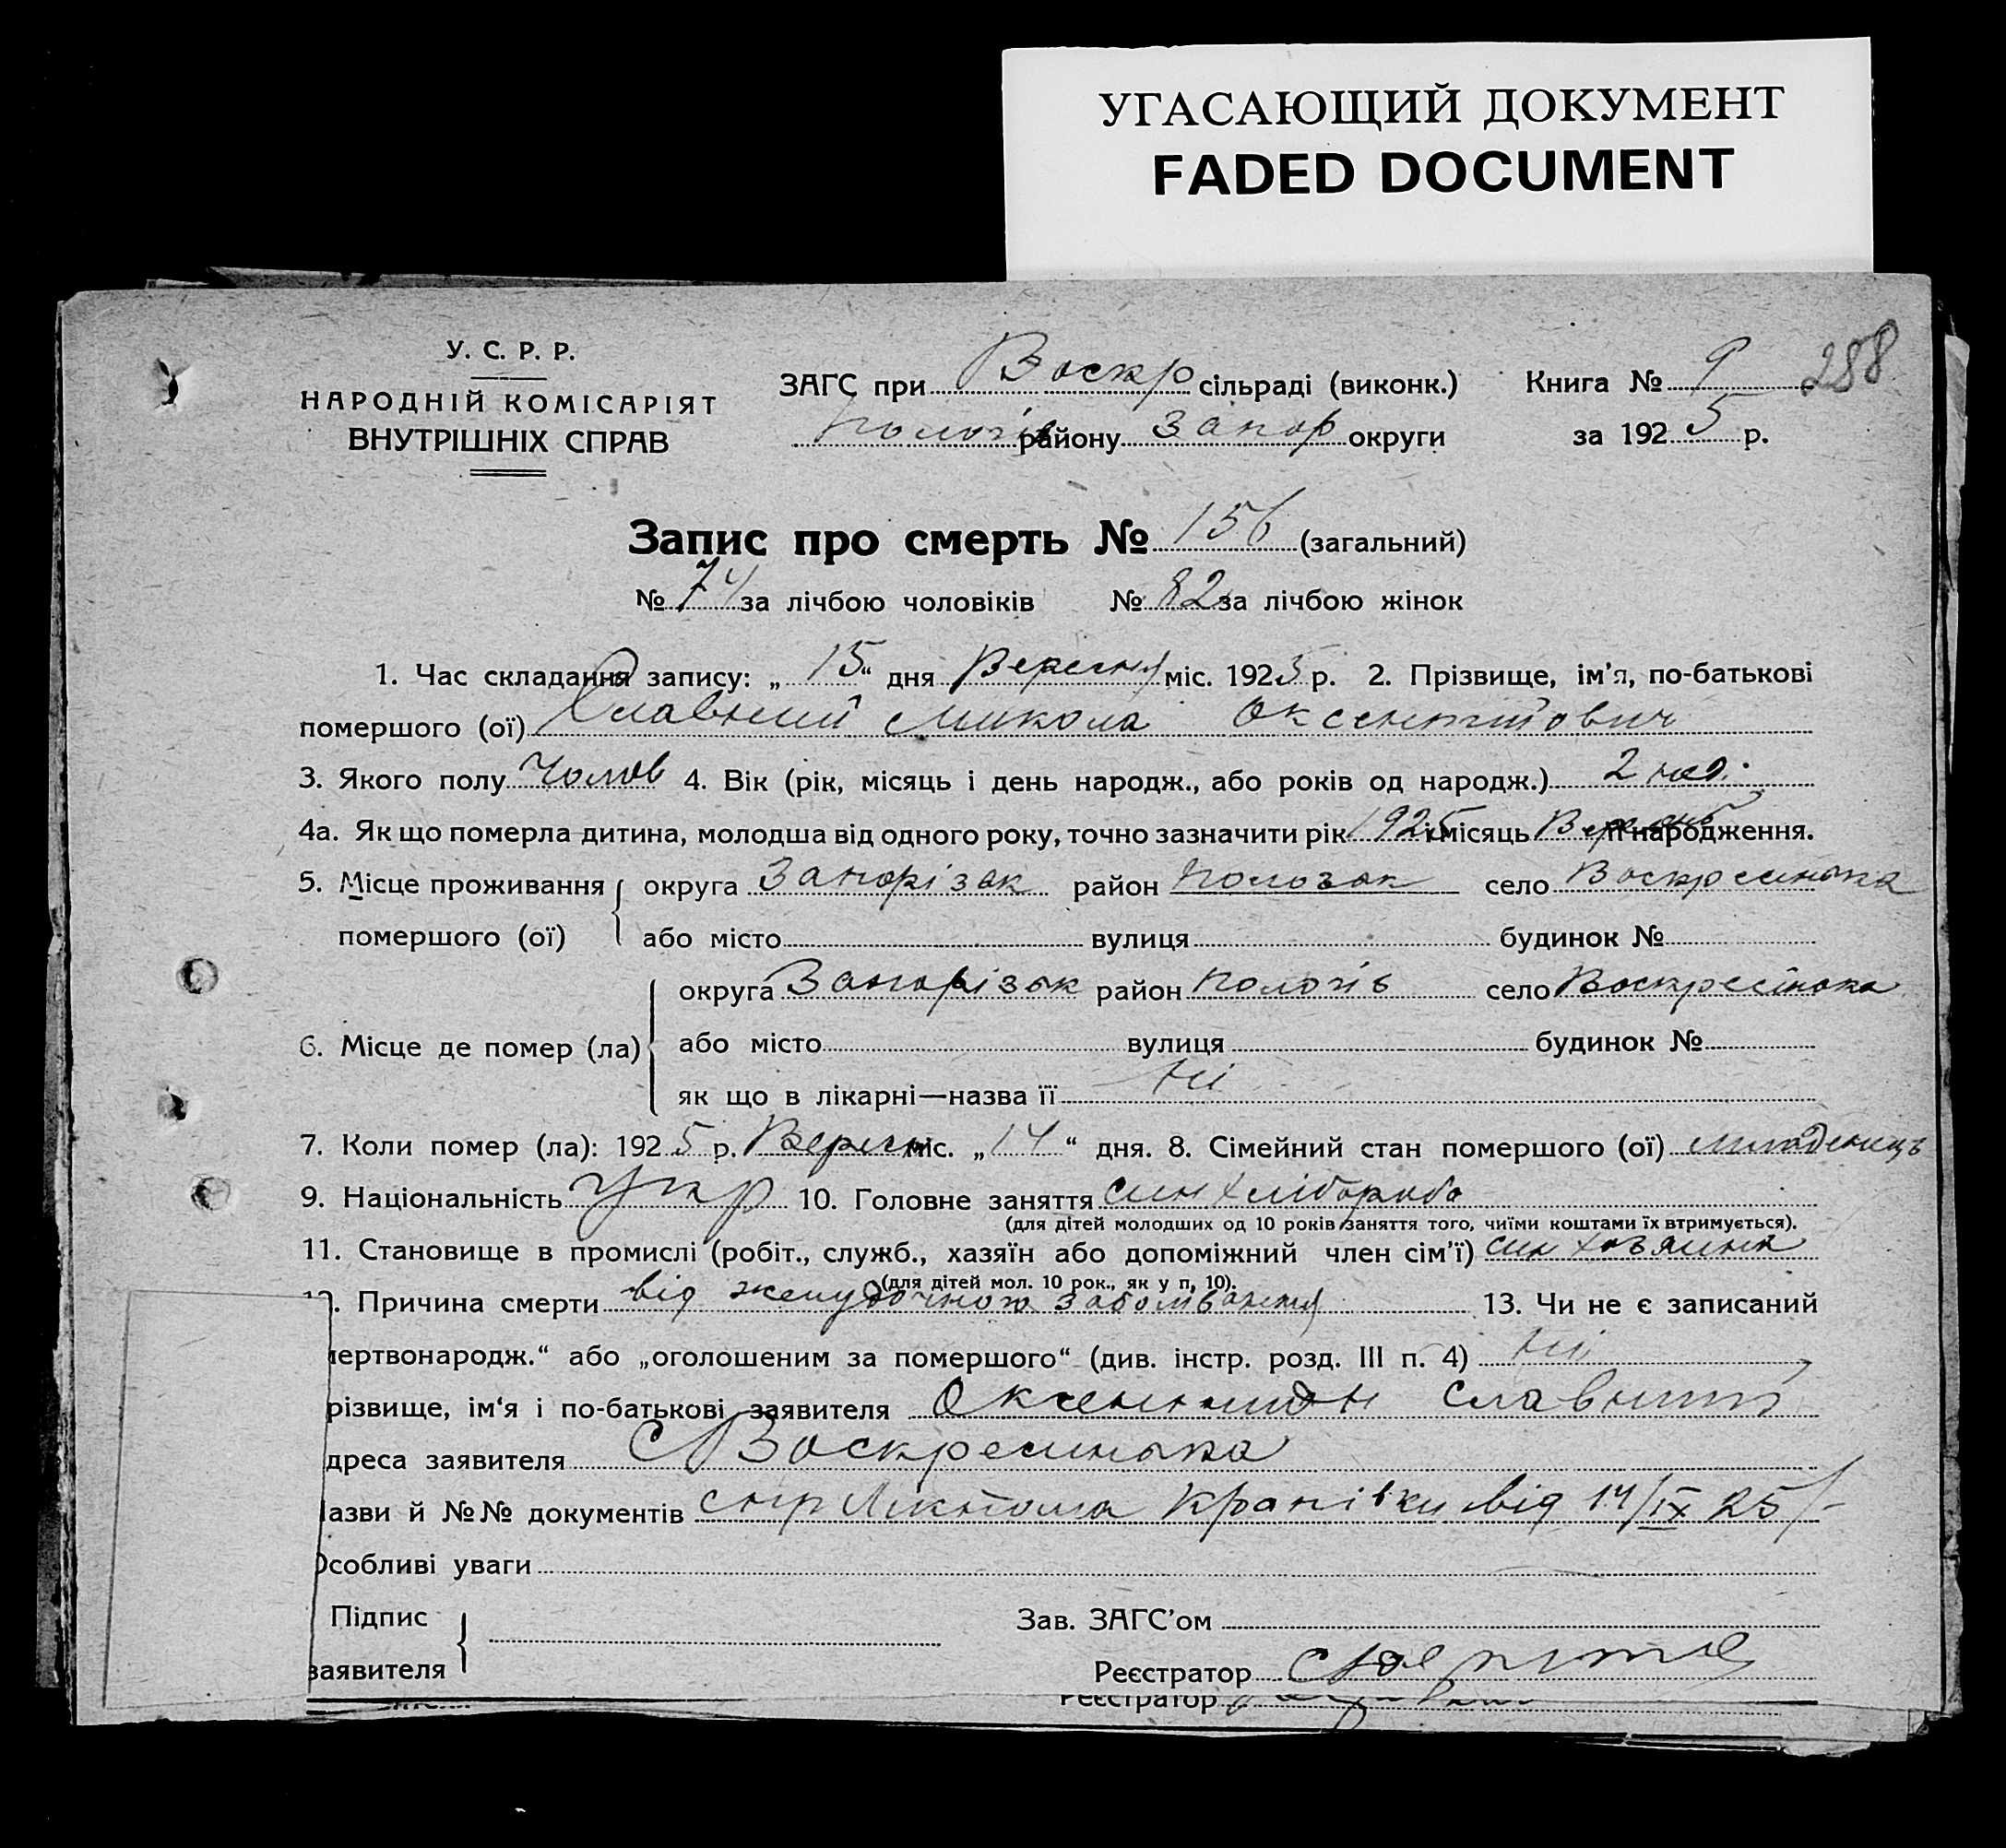 УГАСАЮЩИЙ ДОКУМЕНТ
FADED DOCUMENT
У. С. Р. Р.
НАРОДНІЙ КОМІСАРІЯТ
ВНУТРІШНІХ СПРАВ
ЗАГС при Воскр сільраді (виконк.)
Пологів району Запор округи
Книга № 9 288
за 1925 р.
Запис про смерть № 156 (загальний)
№ 74 за лічбою чоловіків № 82 за лічбою жінок
1. Час складання запису: „15“ дня Вересня міс. 1925 р. 2. Прізвище, ім'я, по-батькові
помершого (ої) Славний Микола Оксентійович
3. Якого полу Чолов 4. Вік (рік, місяць і день народж., або років од народж.) 2 нед.
4а. Як що померла дитина, молодша від одного року, точно зазначити рік 1925 і місяць Верень її народження.
5. Місце проживання округа Запорізьк район Пологзьк село Воскресенька
помершого (ої) або місто вулиця будинок №
округа Запорізьк район Пологів село Воскресінока
6. Місце де помер (ла) або місто вулиця будинок №
як що в лікарні—назва її Ні
7. Коли помер (ла): 1925 р. Вересн міс. „14“ дня. 8. Сімейний стан помершого (ої) младенець
9. Національність Укр 10. Головне заняття син хлібороба
(для дітей молодших од 10 років заняття того, чиїми коштами їх втримується).
11. Становище в промислі (робіт., служб., хазяїн або допоміжний член сім'ї) син хозяина
(для дітей мол. 10 рок., як у п, 10).
12. Причина смерти від желудочного заболівання 13. Чи не є записаний
мертвонародж.“ або „оголошеним за помершого“ (див. інстр. розд. III п. 4) Ні
різвище, ім'я і по-батькові заявителя Славний
дреса заявителя С Воскресенька
азви й №№ документів від 14/IX 25
Особливі уваги
Підпис Зав. ЗАГС'ом
заявителя Реєстратор
Реєстратор